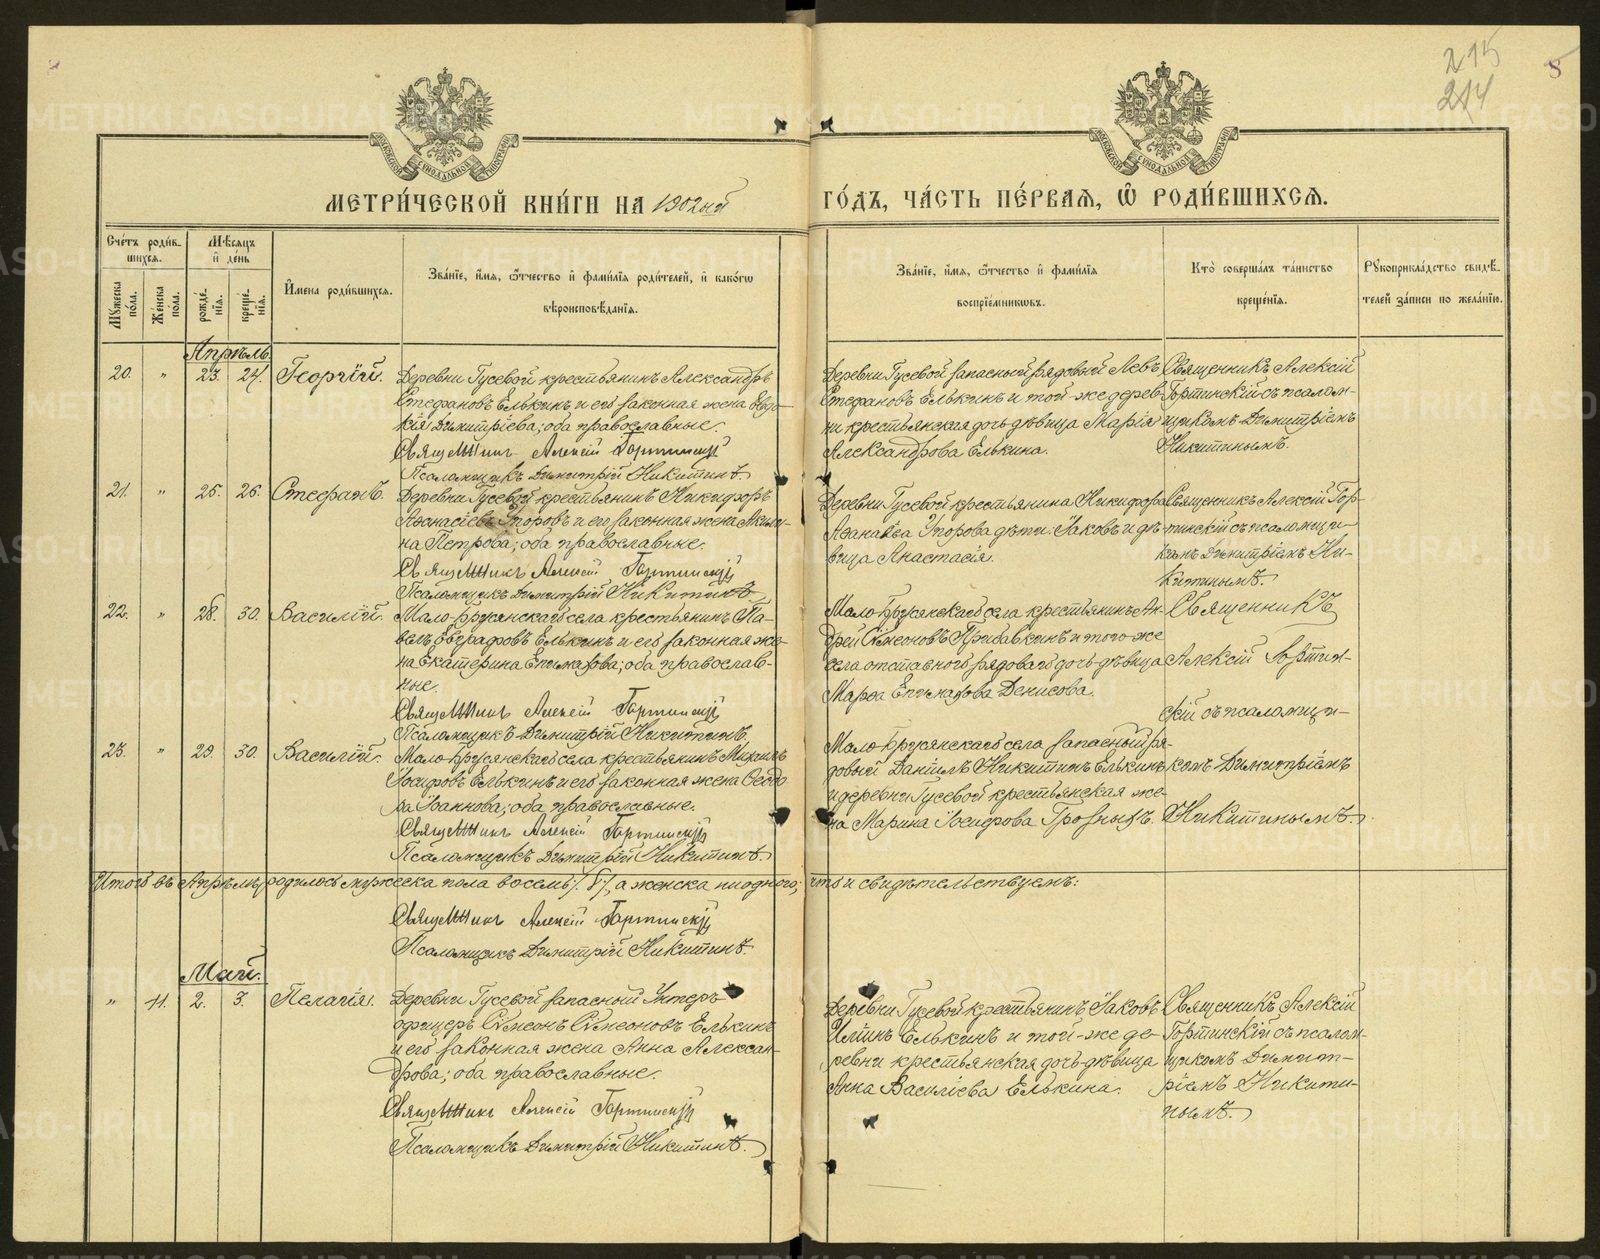 215
214
5
МОСКОВСКОЙ СѴНОДАЛЬНОЙ ТИПОГРАФІИ
МОСКОВСКОЙ СѴНОДАЛЬНОЙ ТИПОГРАФІИ
МЕТРИ́ЧЕСКОЙ КНИ́ГИ НА 1902ый
ГО́ДЪ, ЧА́СТЬ ПЕ́РВАѦ, Ѽ РОДИ́ВШИХСѦ.
Сче́тъ роди́в-
шихсѧ.
Мѣ́сѧцъ
и҆ де́нь
Мꙋ́жеска по́ла.
Же́нска по́ла.
рожде́-
нїѧ.
креще́-
нїѧ.
И҆мена̀ роди́вшихсѧ.
Зва́нїе, и҆́мѧ, ѻ҆́тчество и҆ фами́лїѧ роди́телей, и҆ како́гѡ
вѣроисповѣ́данїѧ.
Зва́нїе, и҆́мѧ, ѻ҆́тчество и҆ фами́лїѧ
воспрїе́мникѡвъ.
Кто̀ соверша́лъ та́инство
креще́нїѧ.
Рꙋкоприкла́дство свидѣ́-
телей за́писи по жела́нїю.
Апрѣль.
20. " 23. 24. Георгій. Деревни Гусевой крестьянинъ Александръ
Стефановъ Елькинъ и его законная жена Евдо-
кія Димитріева; оба православные.
Священникъ Алексій Гортинскій
Псаломщикъ Димитрій Никитинъ.
Деревни Гусевой запасный рядовой Левъ
Стефановъ Елькинъ и той-же дерев-
ни крестьянская дочь-дѣвица Марія
Александрова Елькина.
Священникъ Алексій
Гортинскій съ псалом-
щикомъ Димитріемъ
Никитинымъ.
21. " 25. 26. Стефанъ. Деревни Гусевой крестьянинъ Никифоръ
Аѳанасіевъ Упоровъ и его законная жена Акили-
на Петрова; оба православные.
Священникъ Алексій Гортинскій
Псаломщикъ Димитрій Никитинъ
Деревни Гусевой крестьянина Никифора
Аѳанасіева Упорова дѣти: Іаковъ и дѣ-
вица Анастасія.
Священникъ Алексій Гор-
тинскій съ псаломщи-
комъ Димитріемъ Ни-
китинымъ.
22. " 28. 30. Василій. Мало-Брусянскаго села крестьянинъ Па-
велъ Евграфовъ Елькинъ и его законная же-
на Екатерина Епимахова; оба православ-
ные.
Священникъ Алексій Гортинскій
Псаломщикъ Димитрій Никитинъ.
Мало-Брусянскаго села крестьянинъ Ан-
дрей Сѵмеоновъ Прибавкинъ и того-же
села отставного рядоваго дочь-дѣвица
Марѳа Епимахова Денисова.
Священникъ
Алексій Гортин-
скій съ псаломщи-
23. " 29. 30. Василій. Мало-Брусянскаго села крестьянинъ Михаилъ
Іосифовъ Елькинъ и его законная жена Ѳеодо-
ра Іоаннова; оба православные.
Священникъ Алексій Гортинскій
Псаломщикъ Димитрій Никитинъ.
Мало-Брусянскаго села запасный ря-
довый Даніилъ Никитинъ Елькинъ
и деревни Гусевой крестьянская же-
на Марина Іосифова Грозныхъ.
комъ Димитріемъ
Никитинымъ.
Итого въ Апрѣлѣ родилось мужеска пола восемь /. 8 /, а женска ни одного; что и свидѣтельствуемъ:
Священникъ Алексій Гортинскій
Псаломщикъ Димитрій Никитинъ.
Май.
" 11. 2. 3. Пелагія. Деревни Гусевой запасный Унтеръ-
офицеръ Сѵмеонъ Сѵмеоновъ Елькинъ
и его законная жена Анна Алексан-
дрова; оба православные.
Священникъ Алексій Гортинскій
Псаломщикъ Димитрій Никитинъ.
Деревни Гусевой крестьянинъ Іаковъ
Иліинъ Елькинъ и той-же де-
ревни крестьянская дочь-дѣвица
Анна Василіева Елькина.
Священникъ Алексій
Гортинскій съ псалом-
щикомъ Димит-
ріемъ Никити-
нымъ.
METRIKI.GASO-URAL.RU